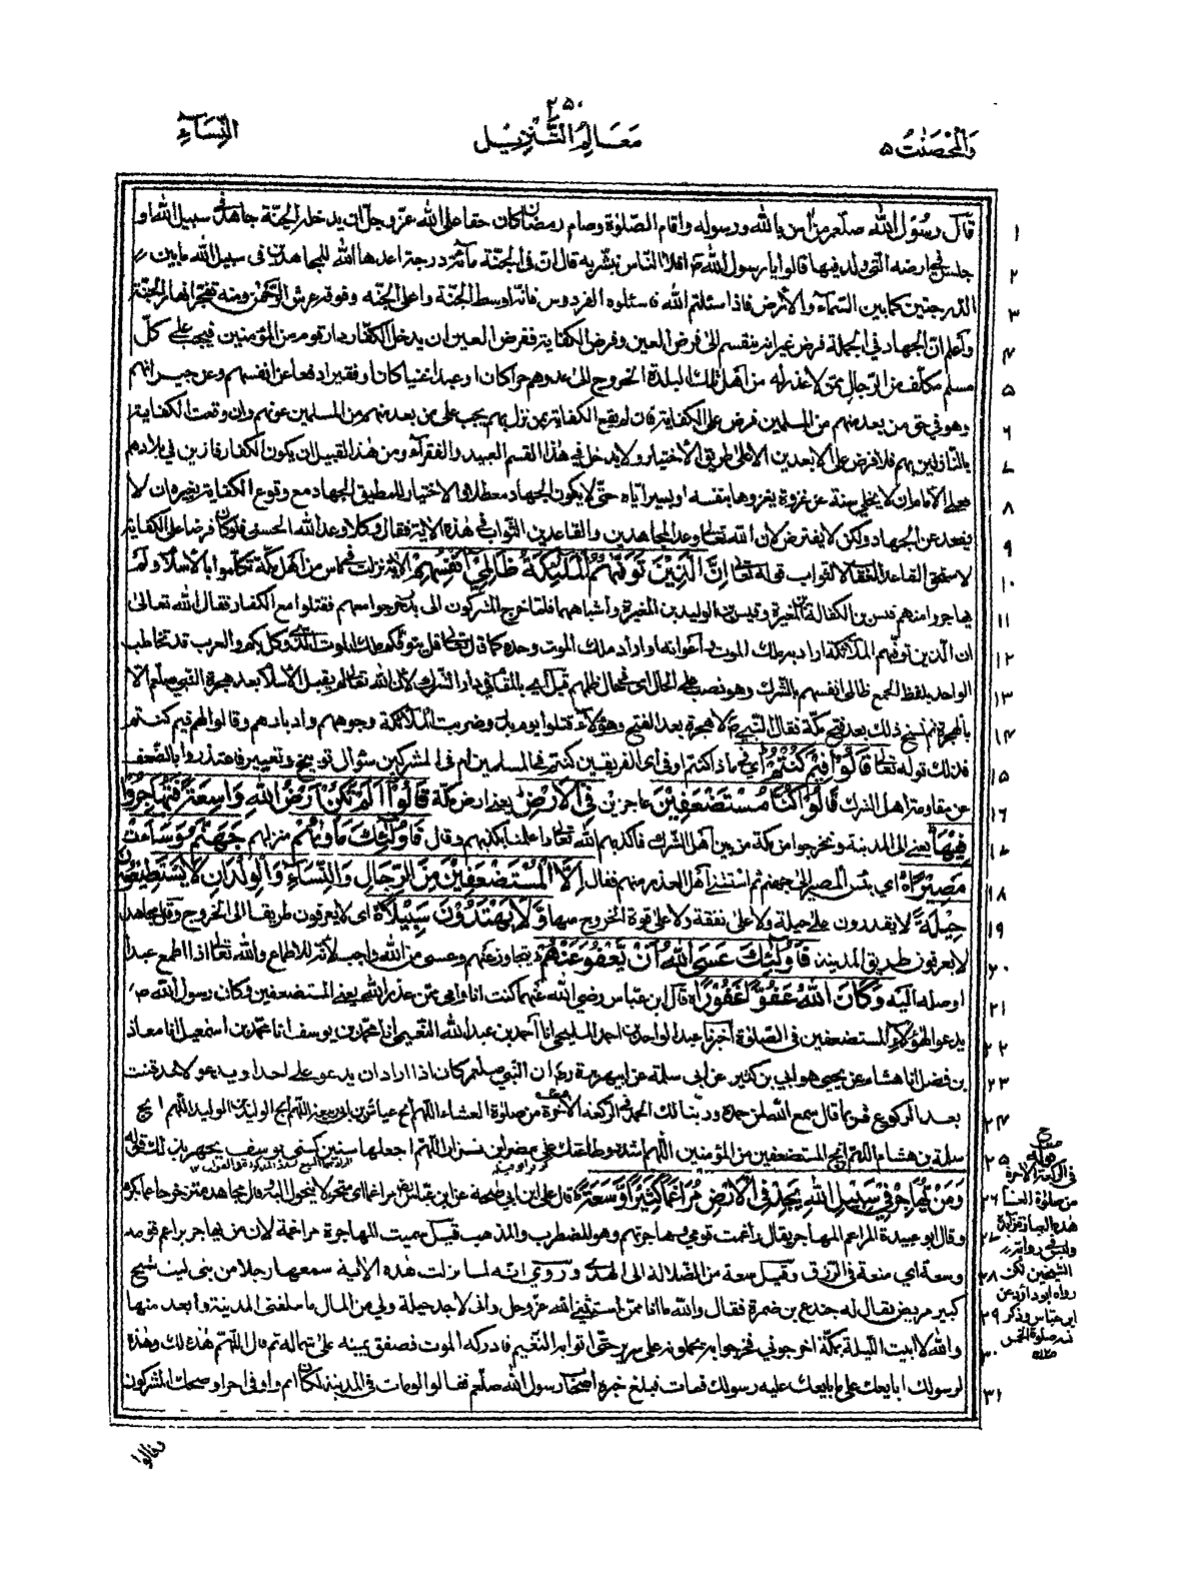 ٢٥٠
والمحصنت ٥
معالم التنزيل
النساء
قال رسول الله صلعم من امن بالله ورسوله واقام الصلوة وصام رمضان كان حقا على الله عز وجل ان يدخله الجنة جاهد في سبيل الله او
جلس في ارضه التي ولد فيها قالوا يا رسول الله افلا الناس نبشر به قال ان في الجنة مائة درجة اعدها الله للمجاهدين في سبيل الله ما بين
الدرجتين كما بين السماء والارض فاذا سئلتم الله فاسئلوه الفردوس فانه اوسط الجنة واعلى الجنه وفوقه عرش الرحمن ومنه تفجر انهار الجنة
واعلم ان الجهاد في الجملة فرض غير انه ينقسم الى فرض العين وفرض الكفاية ففرض العين ان يدخل الكفار دار قوم من المؤمنين فيجب على كل
مسلم مكلف من الرجال ممن لا عذر له من اهل تلك البلدة الخروج الى عدوهم حرا كان او عبدا غنيا كان او فقيرا دفعا عن انفسهم وعن جيرانهم
وهو في حق من بعد منهم من المسلمين فرض على الكفاية فان لم يقع الكفاية بمن نزل بهم يجب على من بعد منهم من المسلمين عونهم وان وقعت الكفاية
بالنازلين بهم فلا فرض على الابعدين الا على طريق الاختيار ولا يدخل في هذا القسم العبيد والفقراء ومن هذا القبيل ان يكون الكفار قارين في بلادهم
فعلى الامام ان لا يخلي سنة عن غزوة يغزوها بنفسه او بسراياه حتى لا يكون الجهاد معطلا والاختيار للمطيق الجهاد مع وقوع الكفاية بغيره ان لا
يقعد عن الجهاد ولكن لا يفترض لان الله تعالى وعد المجاهدين والقاعدين الثواب في هذه الاية فقال وكلا وعد الله الحسنى فلو كان فرضا على الكفاية
لاستحق القاعد العقاب لا الثواب قوله تعالى ان الذين توفهم الملئكة ظالمي انفسهم الاية نزلت في ناس من اهل مكة تكلموا بالاسلام ولم
يهاجروا منهم قيس بن الفاكه بن المغيرة وقيس بن الوليد بن المغيرة واشباههما فلما خرج المشركون الى بدر خرجوا معهم فقتلوا مع الكفار فقال الله تعالى
ان الذين توفهم الملائكة اراد به ملك الموت واعوانه او اراد ملك الموت وحده كما قال تعالى قل يتوفكم ملك الموت الذي وكل بكم والعرب قد تخاطب
الواحد بلفظ الجمع ظالمي انفسهم بالشرك وهو نصب على الحال اي في حال ظلمهم قيل اي بالمقام في دار الشرك لان الله تعالى لم يقبل الاسلام بعد هجرة النبي صلعم الا
بالهجرة ثم نسخ ذلك بعد فتح مكة فقال النبي لا هجرة بعد الفتح وهؤلاء قتلوا يوم بدر وضربت الملائكة وجوههم وادبارهم وقالوا لهم فيم كنتم
فذلك قوله تعالى قالوا فيم كنتم اي في ماذا كنتم او في اي الفريقين كنتم في المسلمين ام في المشركين سؤال توبيخ وتعيير فاعتذروا بالضعف
عن مقاومة اهل الشرك قالوا كنا مستضعفين عاجزين في الارض يعني ارض مكة قالوا الم تكن ارض الله واسعة فتهاجروا
فيها يعني الى المدينة وتخرجوا من مكة من بين اهل الشرك فاكذبهم الله تعالى واعلمنا بكذبهم وقال فاولئك ماوىهم منزلهم جهنم وساءت
مصيرا اي بئس المصير الى جهنم ثم استثنى اهل العذر منهم فقال الا المستضعفين من الرجال والنساء والولدان لا يستطيعون
حيلة لا يقدرون على حيلة ولا على نفقة ولا على قوة الخروج منها ولا يهتدون سبيلا اي لا يعرفون طريقا الى الخروج وقال مجاهد
لا يعرفون طريق المدينة فاولئك عسى الله ان يعفو عنهم يتجاوز عنهم وعسى من الله واجب لانه للاطماع والله تعالى اذا اطمع عبدا
اوصله اليه وكان الله عفوا غفورا قال ابن عباس رضي الله عنهما كنت انا وامي ممن عذر الله يعني المستضعفين وكان رسول الله
يدعو لهؤلاء المستضعفين في الصلوة اخبرنا عبد الواحد بن احمد المليحي انا احمد بن عبد الله النعيمي انا محمد بن يوسف انا محمد بن اسمعيل انا معاذ
بن فضل انا هشام عن يحيى هو ابي بن كثير عن ابي سلمة عن ابي هريرة رض ان النبي صلعم كان اذا اراد ان يدعو على احد او يدعو لاحد قنت
بعد الركوع فربما قال سمع الله لمن حمده ربنا لك الحمد في الركعة الاخرة من صلوة العشاء اللهم انج عياش بن ابي ربيعة اللهم انج الوليد بن الوليد اللهم انج
سلمة بن هشام اللهم انج المستضعفين من المؤمنين اللهم اشدد وطاتك على مضر اللهم اجعلها سنين كسني يوسف يجهر بذلك قوله
ومن يهاجر في سبيل الله يجد في الارض مراغما كثيرا وسعة قال علي ابن ابي طلحة عن ابن عباس رض مراغما اي متحولا يتحول اليه وقال مجاهد متزحزحا عما يكره
وقال ابو عبيدة المراغم المهاجر يقال راغمت قومي وهاجرتهم وهو المضطرب والمذهب قيل سميت المهاجرة مراغمة لان من يهاجر يراغم قومه
وسعة اي منعة في الرزق وقيل سعة من الضلالة الى الهدى وروي انه لما نزلت هذه الاية سمعها رجل من بنى ليث شيخ
كبير مريض يقال له جندع بن ضمرة فقال والله ما انا ممن استثنى الله عز وجل وانى لاجد حيلة ولي من المال ما يبلغني المدينة وابعد منها
والله لا ابيت الليلة بمكة اخرجوني فخرجوا به يحملونه على سرير حتى اتوا به التنعيم فادركه الموت فصفق يمينه على شماله ثم قال اللهم هذه لك وهذه
لرسولك ابايعك على ما بايعك عليه رسولك فمات فبلغ خبره اصحاب رسول الله صلعم فقالوا لو مات في المدينة لكان اتم واوفى اجرا وضحك المشركون
وقالوا
في الركعة الاخرة
من صلوة العشاء
هذه العبارة زائدة
وليس في رواية
الشيخين لكن
رواه ابو داؤد عن
ابن عباس وذكر
فيه صلوة الخمس